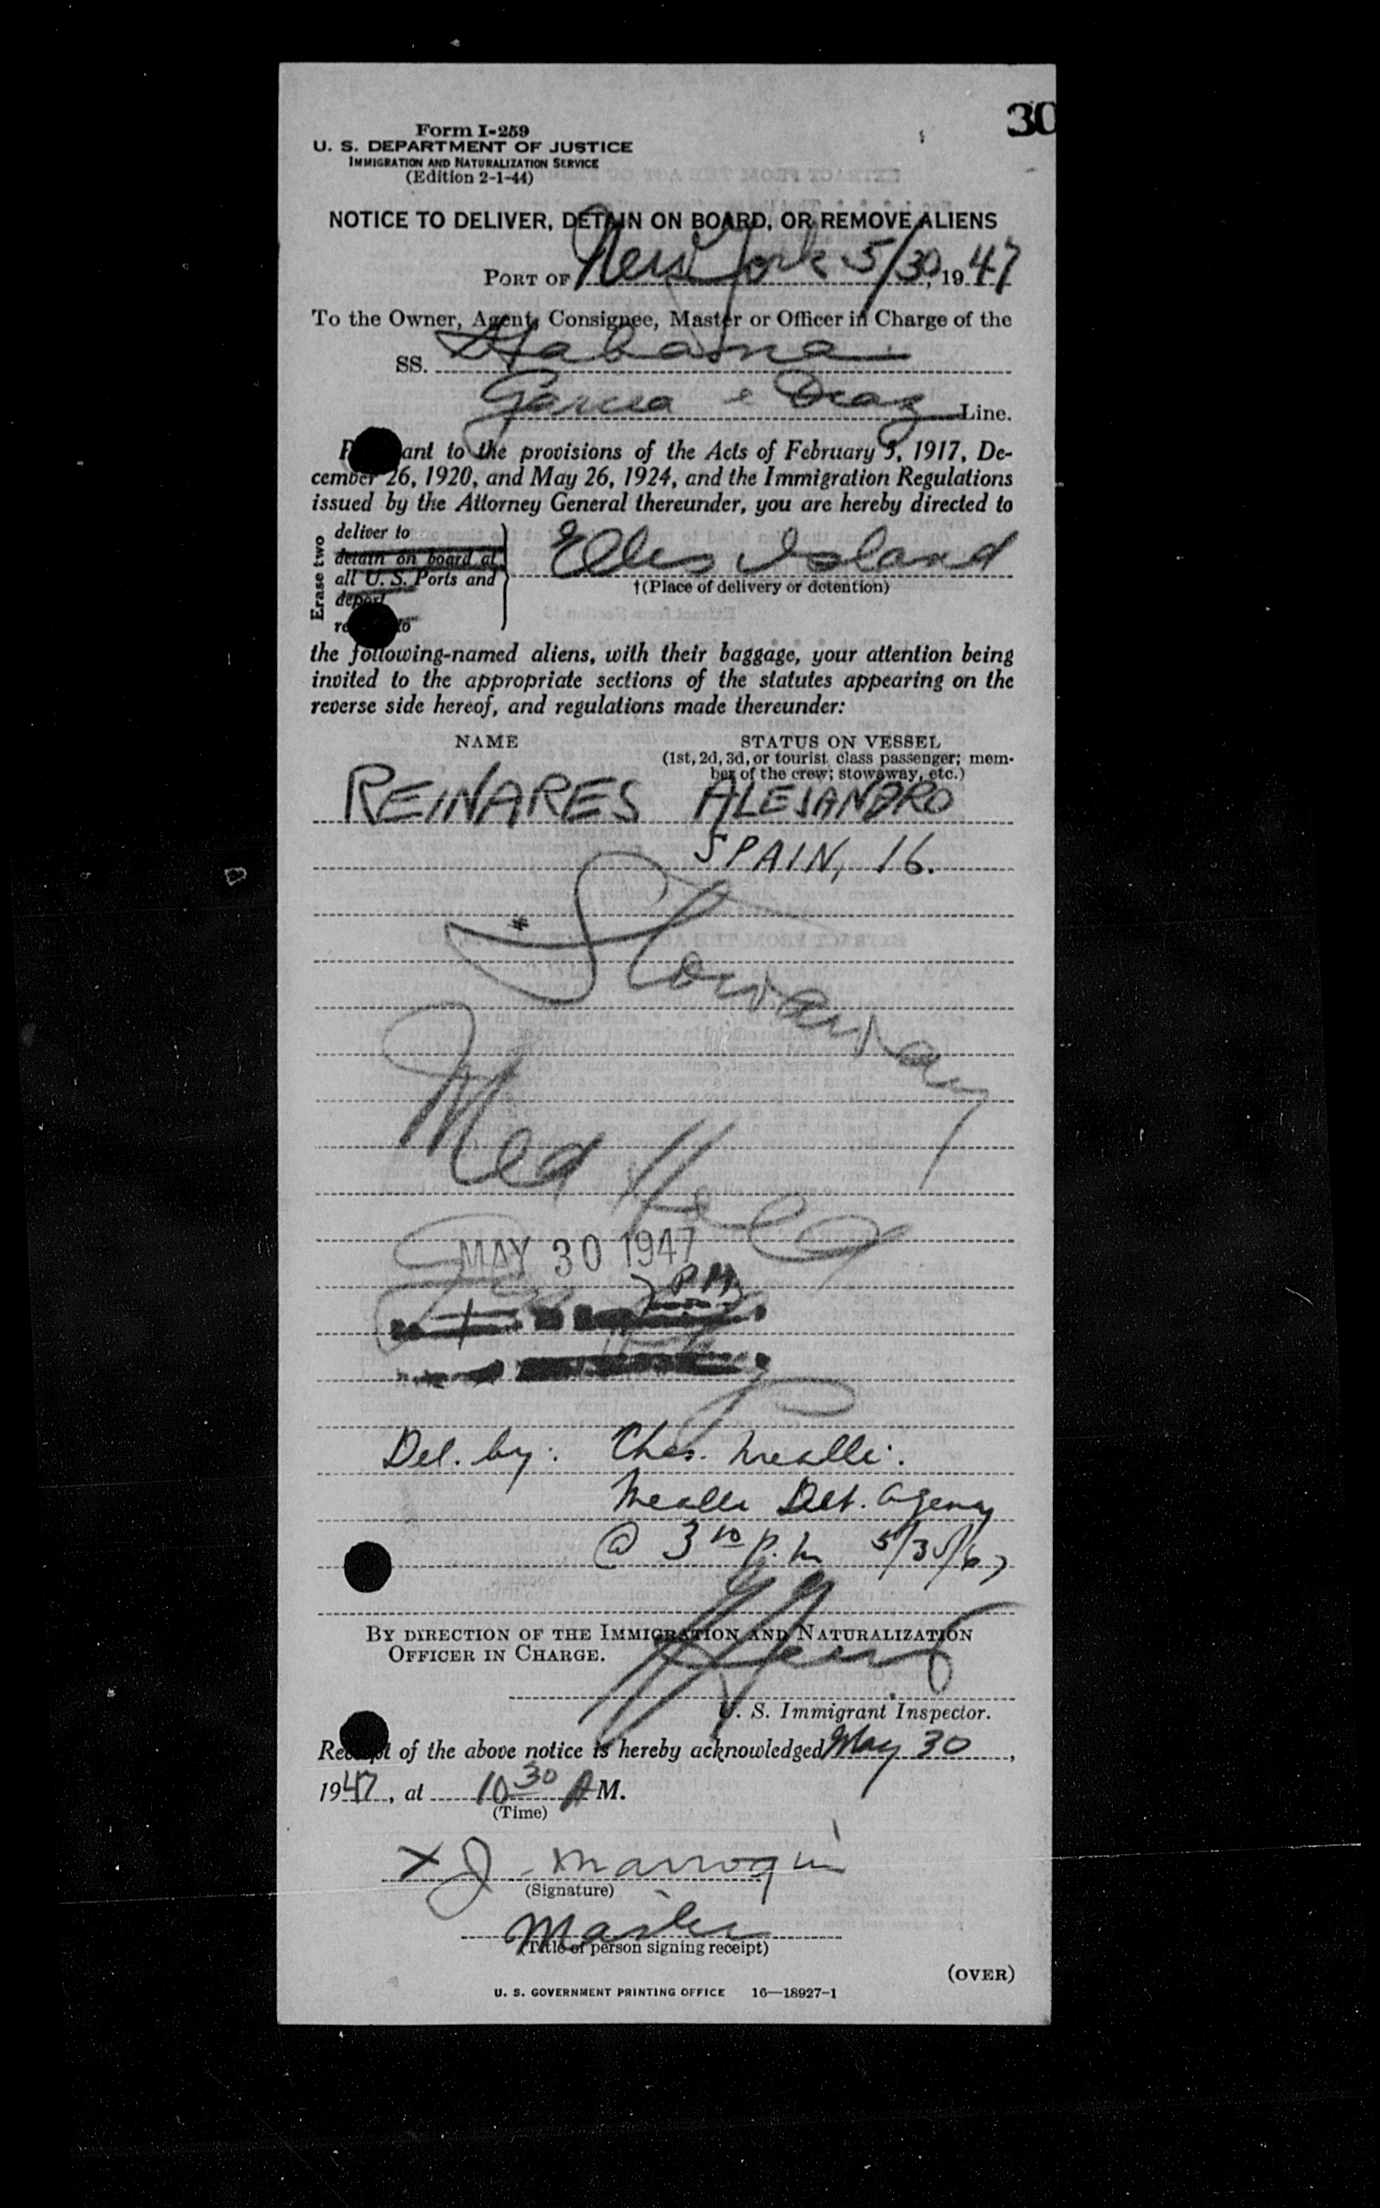 30
Form I-259
U. S. DEPARTMENT OF JUSTICE
IMMIGRATION AND NATURALIZATION SERVICE
(Edition 2-1-44)
NOTICE TO DELIVER, DETAIN ON BOARD, OR REMOVE ALIENS
PORT OF New York 5/30, 1947
To the Owner, Agent, Consignee, Master or Officer in Charge of the
SS. Habana
Garcia & Diaz Line.
P ant to the provisions of the Acts of February 5, 1917, De-
cember 26, 1920, and May 26, 1924, and the Immigration Regulations
issued by the Attorney General thereunder, you are hereby directed to
Erase two
deliver to
detain on board at
all U. S. Ports and
deport
re to
Ellis Island
†(Place of delivery or detention)
the following-named aliens, with their baggage, your attention being
invited to the appropriate sections of the statutes appearing on the
reverse side hereof, and regulations made thereunder:
NAME STATUS ON VESSEL
(1st, 2d, 3d, or tourist class passenger; mem-
ber of the crew; stowaway, etc.)
REINARES ALEJANDRO
SPAIN, 16.
Stowaway
Med Held
MAY 30 1947
PM
Del. by: Chas. Mealli.
Mealli Det. Agency
@ 3 10 p.m
BY DIRECTION OF THE IMMIGRATION AND NATURALIZATION
OFFICER IN CHARGE.
U. S. Immigrant Inspector.
Receipt of the above notice is hereby acknowledged May 30,
1947, at 10 30 A M.
(Time)
X J. Marroquin
(Signature)
Master
(Title of person signing receipt)
(OVER)
U. S. GOVERNMENT PRINTING OFFICE 16—18927-1